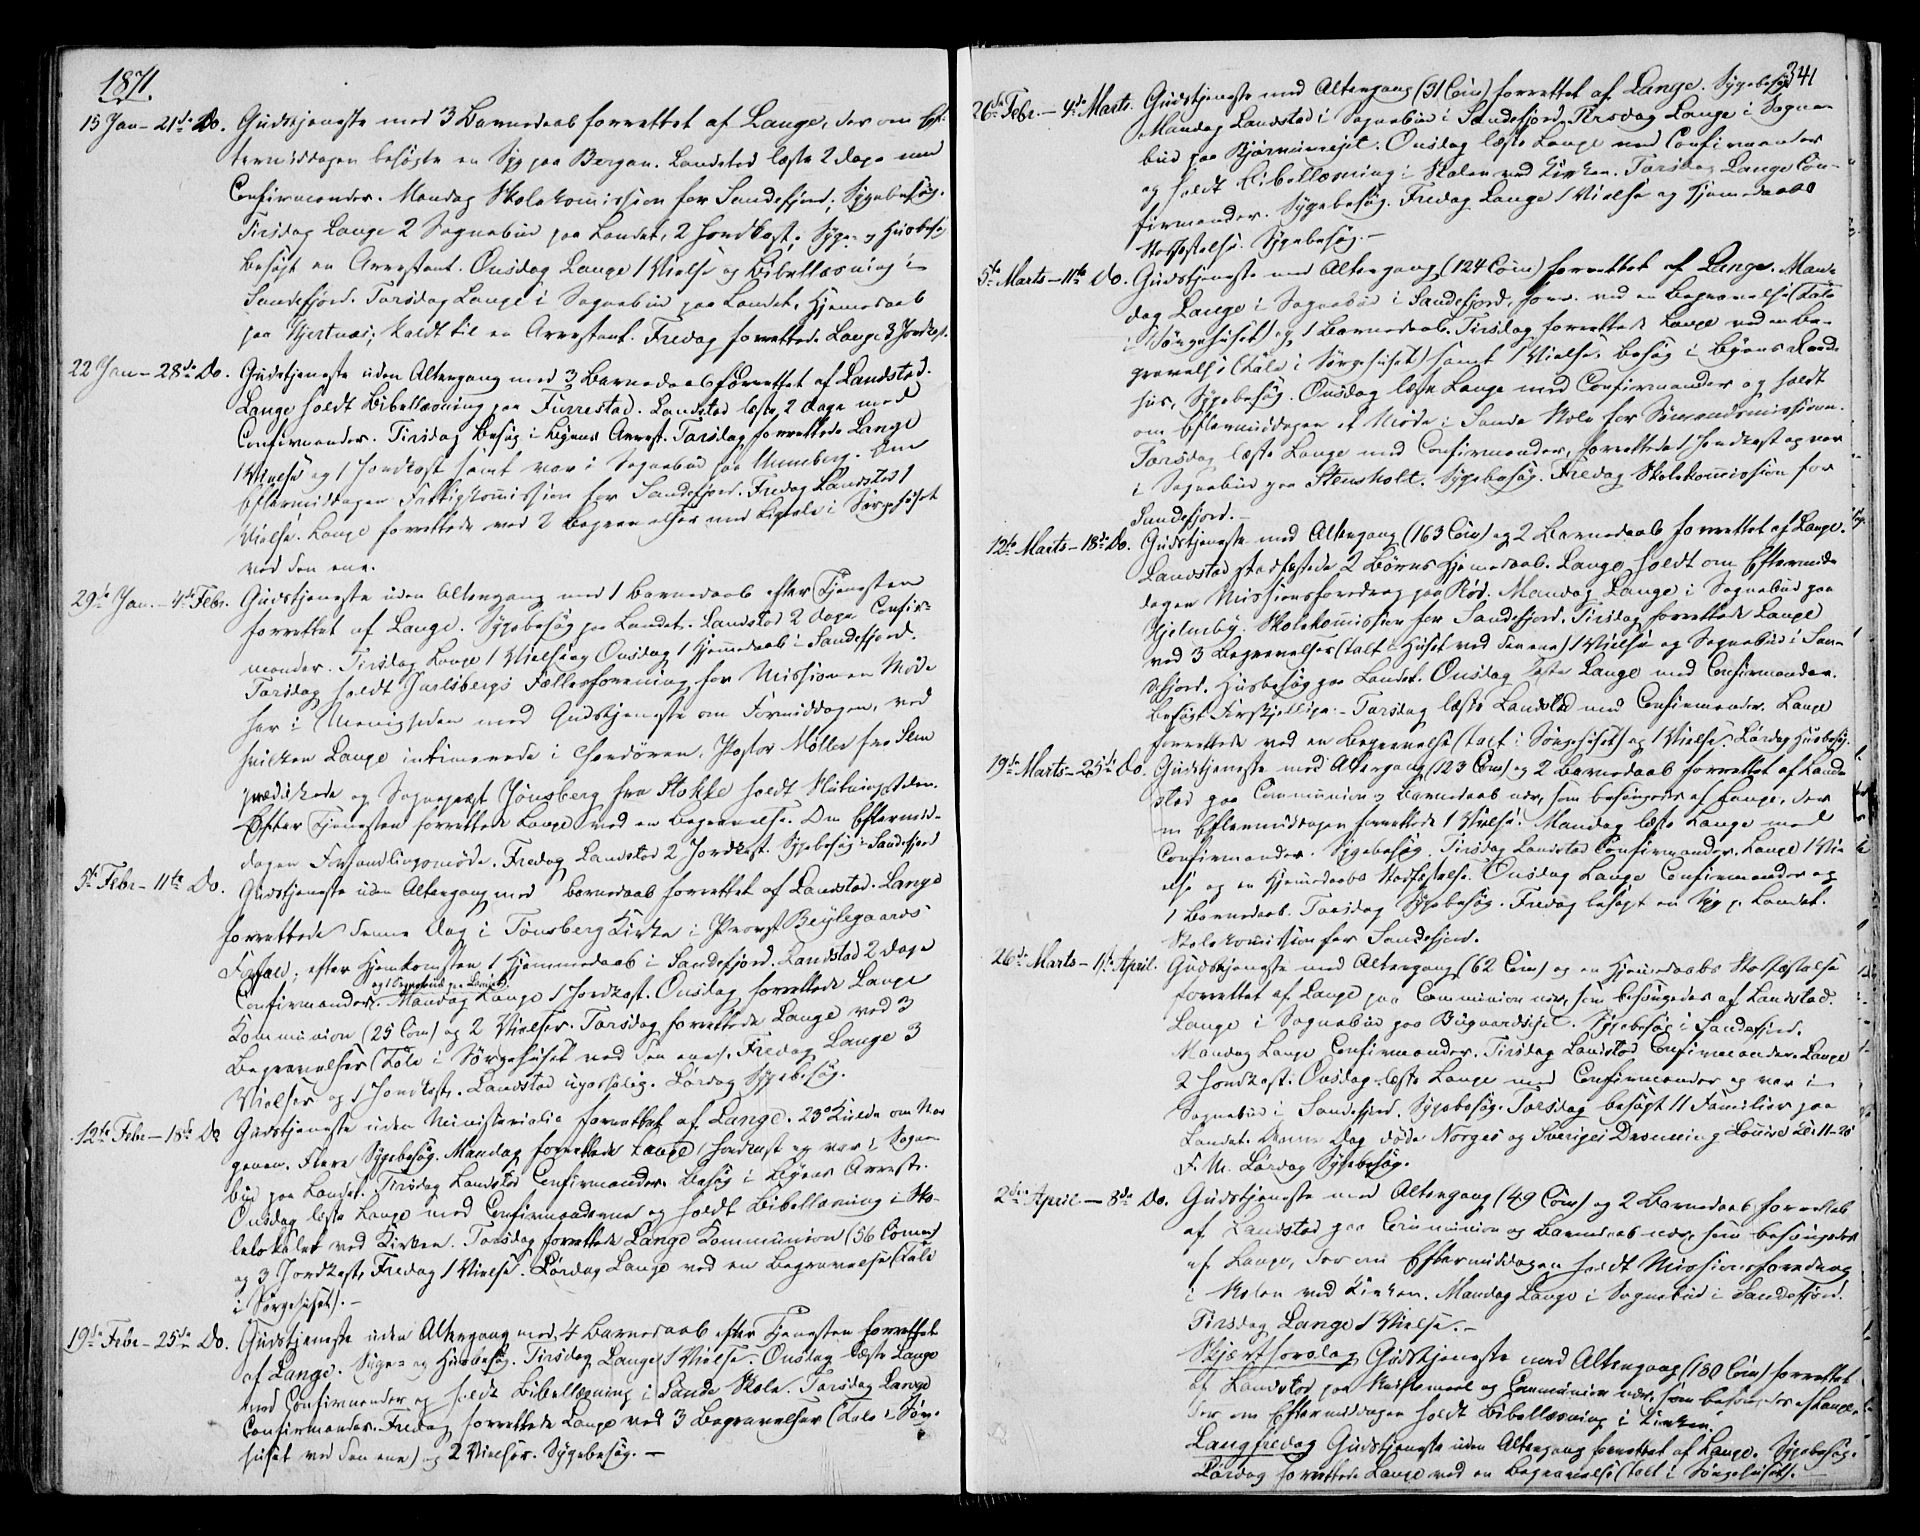 1871.
15 Jan – 21de Do. Gudstjeneste med 3 Barnedaab forrettet af Lange, der om Ef-
termiddagen besøgte en Syg paa Bergan. Landstad læste 2 Dage med
Confirmander. Mandag Skolekomission for Sandefjord; Sygebesøg.
Tirsdag Lange 2 Sognebud paa Landet, 2 Jordkast; Syge- og Husbesøg
besøgt en Arrestant. Onsdag Lange 1 Vielse og Bibellæsning i
Sandefjord. Torsdag Lange i Sognebud paa Landet, Hjemedaab
paa Hjertnæs; kaldt til en Arrestant. Fredag forrettede Lange 3 Jordkast.
22 Jan – 28de Do. Gudstjeneste uden Altergang med 3 Barnedaab forrettet af Landstad.
Lange holdt Bibellæsning paa Furrestad. Landstad læste 2 Dage med
Confirmander. Tirsdag Besøg i Byens Arrest. Torsdag forrettede Lange
1 Vielse og 1 Jordkast samt var i Sognebud paa Unneberg. Om
Eftermiddagen Fattigkomission for Sandefjord. Fredag Landstad 1
Vielse. Lange forrettede ved 2 Begravelser med Ligtale i Sørgehuset
ved den ene.
29de Jan. – 4de Febr. Gudstjeneste uden Altergang med 1 Barnedaab efter Tjenesten
forrettet af Lange. Sygebesøg paa Landet. Landstad 2 Dage Confir-
mander. Tirsdag Lange 1 Vielse og Onsdag 1 Hjemmedaab i Sandefjord.
Torsdag holdt Jarlsbergs Fællesforening for Mission en Møde
her i Menigheden med Gudstjeneste om Formiddagen, ved
hvilken Lange intimerede i Chordøren, Pastor Møller fra Slem
prædikede og Sognepræst Jønsberg fra Stokke holdt Slutningstalen.
Efter Tjenesten forrettede Lange ved en Begravelse. Om Eftermid-
dagen Forhandlingsmøde. Fredag Landstad 2 Jordkast. Sygebesøg i Sandefjord
5te Febr – 11te Do. Gudstjeneste uden Altergang med Barnedaab forrettet af Landstad. Lange
forrettede denne Dag i Tønsberg Kirke i Provst Beylegaards
Forfald; efter Hjemkomsten 1 Hjemmedaab i Sandefjord. Landstad 2 Dage
og 1 Sognebud paa Landet
Confirmander. Mandag Lange 1 Jordkast. Onsdag forrettede Lange
Kommunion (25 Com) og 2 Vielser. Torsdag forrettede Lange ved 3
Begravelser (Tale i Sørgehuset ved den ene). Fredag Lange 3
Vielser og 1 Jordkast. Landstad upasselig. Lørdag Sygebesøg.
12te Febr – 18de Do Gudstjeneste uden Ministerialie forrettet af Lange. 23° Kulde om Mor-
genen. Flere Sygebesøg. Mandag forrettede Lange 1 Jordkast og var i Sogne-
bud paa Landet. Tirsdag Landstad Confirmander. Besøg i Byens Arrest.
Onsdag læste Lange med Confirmanderne og holdt Bibellæsning i Sko-
lelokalet ved Kirken. Torsdag forrettede Lange Kommunion (56 Comm)
og 3 Jordkast, Fredag 1 Vielse. Lørdag Lange ved en Begravelse (Tale
i Sørgehuset). –
19de Febr – 25de Do. Gudstjeneste uden Altergang med 4 Barnedaab efter Tjenesten forrettet
af Lange. Syge- og Husbesøg. Tirsdag Lange 1 Vielse. Onsdag læste Lange
med Confirmander og holdt Bibellæsning i Sande Skole. Torsdag Lange
Confirmander. Fredag forrettede Lange ved 3 Begravelser (Tale i Sørge-
huset ved den ene) og 2 Vielser. Sygebesøg. –
341
26de Febr – 4de Marts. Gudstjeneste med Altergang (31 Com) forrettet af Lange. Sygebesøg
Mandag Landstad i Sognebud i Sandefjord, Tirsdag Lange i Sogne-
bud paa Bjørnumejet. Onsdag læste Lange med Confirmander
og holdt Bibellæsning i Skolen ved Kirken. Torsdag Lange Con-
firmander. Sygebesøg. Fredag Lange 1 Vielse og Hjemedaabs
Stadfæstelse. Sygebesøg. –
5te Marts – 11te Do. Gudstjeneste med Altergang (124 Com) forrettet af Lange. Man-
dag Lange i Sognebud i Sandefjord, forr. ved en Begravelse (Tale
i Sørgehuset) og 1 Barnedaab. Tirsdag forrettede Lange ved en Be-
gravelse (Tale i Sørgehuset) samt 1 Vielse. Besøg i Byens Raad-
hus, Sygebesøg. Onsdag læste Lange med Confirmander og holdt
om Eftermiddagen et Møde i Sande Skole for Sømandsmissionen.
Torsdag læste Lange med Confirmander, forrettede 1 Jordkast og var
i Sognebud paa Stensholt. Sygebesøg. Fredag Skolekomission for
Sandefjord. –
12te Marts – 18de Do. Gudstjeneste med Altergang (163 Com) og 2 Barnedaab forrettet af Lange.
Landstad stadfæstede 2 Børns Hjemedaab. Lange holdt om Eftermid-
dagen Missionsforedrag paa Rød. Mandag Lange i Sognebud paa
Hjelmby. Skolekomission for Sandefjord. Tirsdag forrettede Lange
ved 3 Begravelser (talt i Huset ved den ene) 1 Vielse og Sognebud i San-
defjord. Husbesøg paa Landet. Onsdag læste Lange med Confirmander.
Besøgt Forskjellige. – Torsdag læste Landstad med Confirmander. Lange
forrettede ved en Begravelse (talt i Sørgehuset) og 1 Vielse. Lørdag Husbesøg.
19de Marts – 25de Do. Gudstjeneste med Altergang (123 Com) og 2 Barnedaab forrettet af Land-
stad paa Communion og Barnedaab nær, som besørgedes af Lange, der
m Eftermiddagen forrettede 1 Vielse. Mandag læste Lange med
Confirmander. Sygebesøg. Tirsdag Landstad Confirmander. Lange 1 Vi-
else og en Hjemedaabs Stadfæstelse. Onsdag Lange Confirmander og
1 Barnedaab. Torsdag Sygebesøg. Fredag besøgt en Syg p. Landet.
Skolekomission for Sandefjord.
26de Marts – 1ste April. Gudstjeneste med Altergang (62 Com) og en Hjemedaabs Stadfæstelse
forrettet af Lange paa Communion nær, som besørgedes af Landstad.
Lange i Sognebud paa Bugaardsejet. Sygebesøg i Sandefjord.
Mandag Lange Confirmander. Tirsdag Landstad Confirmander. Lange
2 Jordkast. Onsdag læste Lange med Confirmander og var i
Sognebud i Sandefjord. Sygebesøg. Torsdag besøgt 11 Familier paa
Landet. Denne Dag døde Norges og Sveriges Dronning Louise Kl. 11-20
F. M. Lørdag Sygebesøg.
2den April – 8de Do. Gudstjeneste med Altergang (49 Com) og 2 Barnedaab forrettet
af Landstad paa Communion og Barnedaab nær, som besørgedes
af Lange, der om Eftermiddagen holdt Missionsforedrag
i Skolen ved Kirken. Mandag Lange i Sognebud i Sandefjord.
Tirsdag Lange 1 Vielse. –
Skjærthorsdag Gudstjeneste med Altergang (180 Com) forrettet
af Landstad paa Skriftemaal og Communion nær, som besørgedes af Lange,
der om Eftermiddagen holdt Bibellæsning i Kirken.
Langfredag Gudstjeneste uden Altergang forrettet af Lange. Sygebesøg.
Lørdag forrettede Lange ved en Begravelse (talt i Sørgehuset). –